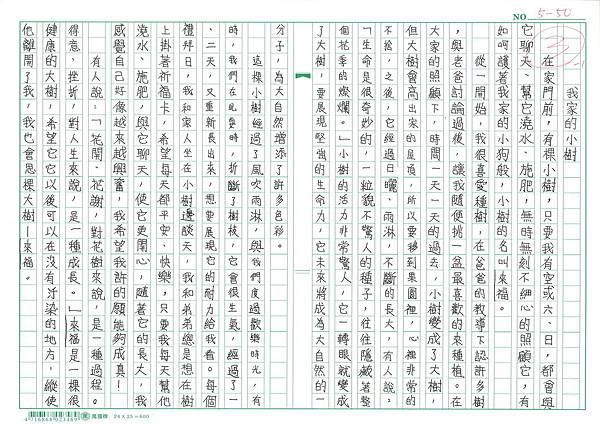 NO. 5-50
3
我家的小樹
在家門前，有棵小樹，只要我有空或六、日，都會與
它聊天、幫它澆水、施肥，無時無刻不細心的照顧它，有
如呵護著我家的小狗般，小樹的名叫來福。
從一開始，我很喜愛種樹，在爸爸的教導下認許多樹
，與老爸討論過後，讓我隨便挑一盆最喜歡的來種植。在
大家的照顧下，時間一天一天的過去，小樹變成了大樹，
但大樹會高出家的屋頂，所以要移到果園裡，心裡非常的
不捨，之後，它經過日曬、雨淋，不斷的長大，有人說：
「生命是很奇妙的，一粒貌不驚人的種子，往往隱藏著整
個花季的燦爛。」小樹的活力非常驚人，它一轉眼就變成
了大樹，要展現堅強的生命力，它未來將成為大自然的一
分子，為大自然增添了許多色彩。
這棵小樹經過了風吹雨淋，與我們度過歡樂時光，有
時，我們在玩耍時，折斷了樹枝，它會很生氣，經過了一
、二天，又重新長出來，想要展現它的耐力給我看。每個
禮拜日，我和家人坐在小樹邊談天，我和弟弟總是想在樹
上掛著祈福卡，希望每天都平安、快樂，只要我每天幫他
澆水、施肥，與它聊天，使它更開心，隨著它的長大，我
感覺自己好像越來越興奮，我希望我許的願能夠成真！
有人說：「花開、花謝，對花樹來說，是一種過程。
得意、挫折，對人生來說，是一種成長。」來福是一棵很
健康的大樹，希望它它以後可以在沒有汙染的地方，縱使
他離開了我，我也會思棵大樹－來福。
4716868023469
萬國牌 24×25=600